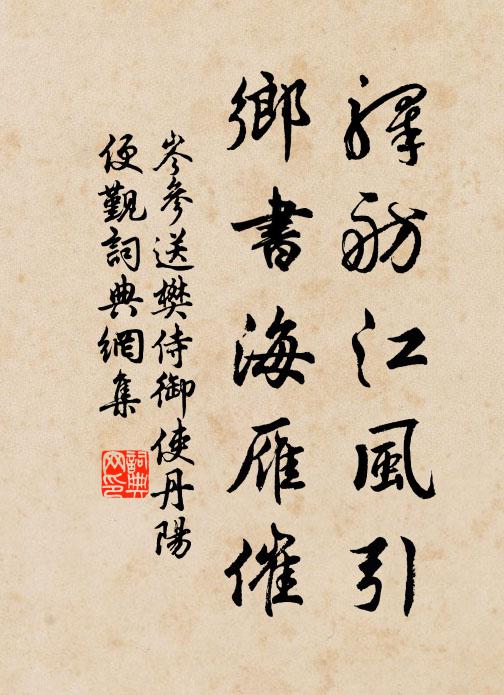 驛舫江風引
鄉書海雁催
岑參送樊侍御使丹陽
便覲詞典網集
詞典
网印